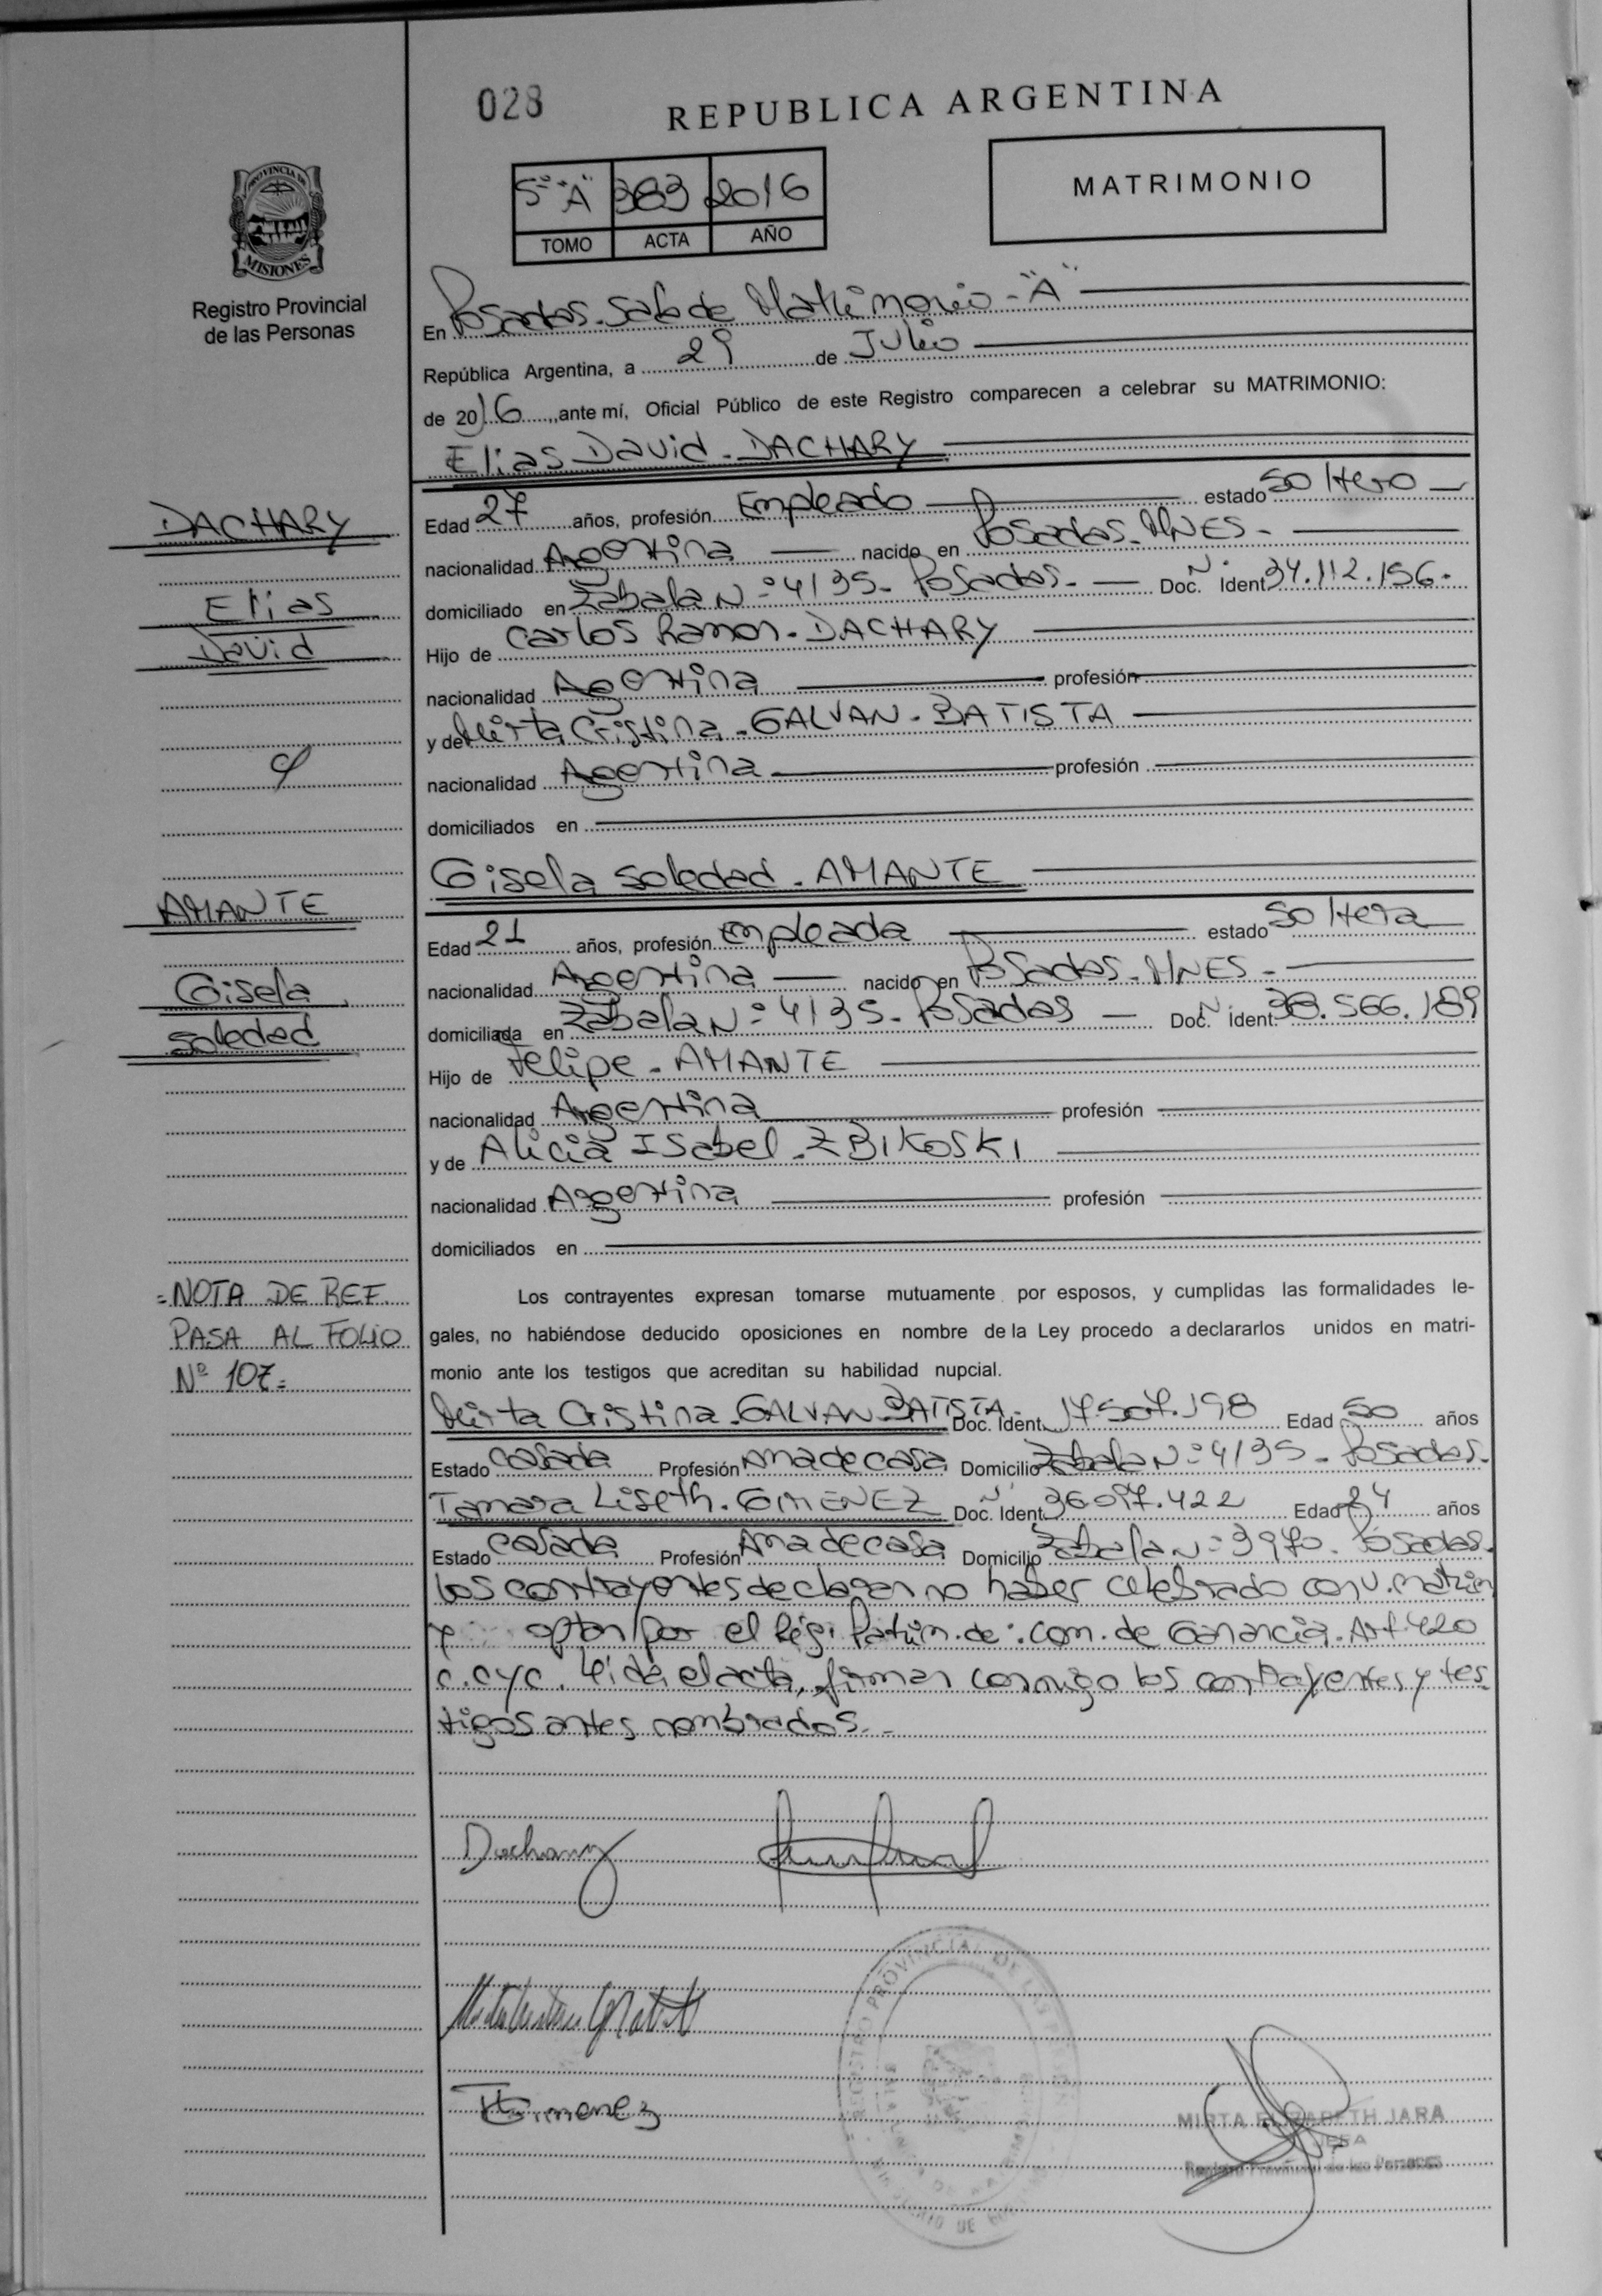 028
REPUBLICA ARGENTINA
PROVINCIA DE
MISIONES
Registro Provincial
de las Personas
5º "A" 383 2016
TOMO ACTA AÑO
MATRIMONIO
En Posadas. Sala de Matrimonio - "A"
República Argentina, a 29 de Julio
de 2016, ante mí, Oficial Público de este Registro comparecen a celebrar su MATRIMONIO:
Elias David - DACHARY
DACHARY
Elias
David
Edad 27 años, profesión Empleado estado Soltero
nacionalidad Argentina nacido en Posadas - MNES -
domiciliado en Zabala Nº 4135 - Posadas - Doc. N. Ident 34.112.156.
Hijo de Carlos Ramon - DACHARY
nacionalidad Argentina profesión
y de Mirta Cristina - GALVAN - BATISTA
nacionalidad Argentina profesión
domiciliados en
Gisela Soledad - AMANTE
AMANTE
Gisela
Soledad
Edad 21 años, profesión Empleada estado Soltera
nacionalidad Argentina nacido en Posadas - MNES -
domiciliada en Zabala Nº 4135 - Posadas Doc. N. Ident. 38.566.189
Hijo de Felipe - AMANTE
nacionalidad Argentina profesión
y de Alicia Isabel - ZBIKOSKI
nacionalidad Argentina profesión
domiciliados en
= NOTA DE REF.
PASA AL FOLIO
Nº 107 =
Los contrayentes expresan tomarse mutuamente por esposos, y cumplidas las formalidades le-
gales, no habiéndose deducido oposiciones en nombre de la Ley procedo a declararlos unidos en matri-
monio ante los testigos que acreditan su habilidad nupcial.
Mirta Cristina - GALVAN - BATISTA - Doc. Ident. 17.507.198 Edad 50 años
Estado Casada Profesión Ama de casa Domicilio Zabala Nº 4135 - Posadas -
Tamara Liseth - GIMENEZ Doc. N. Ident. 36.097.422 Edad 24 años
Estado Casada Profesión Ama de casa Domicilio Zabala Nº 3970 - Posadas -
Los contrayentes declaran no haber celebrado conv. matrim
y optan por el Rég. Patrim. de: com. de Ganancia. Art 420
c.cyc. Leida el acta, firman conmigo los contrayentes y tes-
tigos antes nombrados. -
Dachary
Gimenez
REGISTRO PROVINCIAL DE LAS PERSONAS
MIRTA ELIZABETH JARA
JEFA
Registro Provincial de las Personas